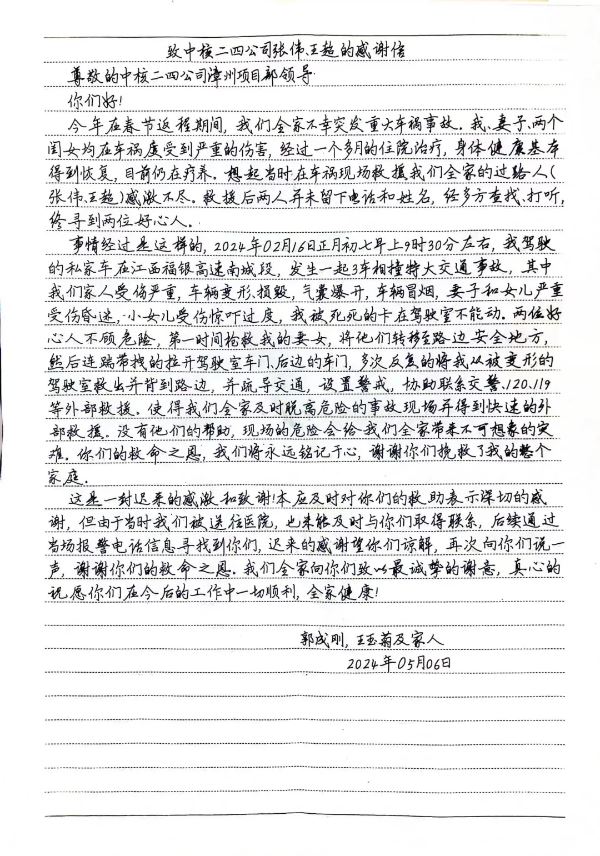 致中核二四公司张伟、王超的感谢信
尊敬的中核二四公司漳州项目部领导:
你们好!
今年在春节返程期间,我们全家不幸突发重大车祸事故。我、妻子、两个
闺女均在车祸度受到严重的伤害,经过一个多月的住院治疗,身体健康基本
得到恢复,目前仍在疗养。想起当时在车祸现场救援我们全家的过路人(
张伟、王超)感激不尽。救援后两人并未留下电话和姓名,经多方查找、打听,
终寻到两位好心人。
事情经过是这样的,2024年02月16日正月初七早上9时30分左右,我驾驶
的私家车在江西福银高速南城段,发生一起3车相撞特大交通事故,其中
我们家人受伤严重,车辆变形、损毁,气囊爆开,车辆冒烟,妻子和女儿严重
受伤昏迷,小女儿受伤惊吓过度,我被死死的卡在驾驶室不能动。两位好
心人不顾危险,第一时间抢救我的妻女,将他们转移至路边安全地方,
然后连踹带找的拉开驾驶室车门、后边的车门,多次反复的将我从被变形的
驾驶室救出并背到路边,并疏导交通,设置警戒,协助联系交警、120、119
等外部救援。使得我们全家及时脱离危险的事故现场并得到快速的外
部救援。没有他们的帮助,现场的危险会给我们全家带来不可想象的灾
难。你们的救命之恩,我们将永远铭记于心,谢谢你们挽救了我的整个
家庭。
这是一封迟来的感激和致谢!本应及时对你们的救助表示深切的感
谢,但由于当时我们被送往医院,也未能及时与你们取得联系,后续通过
当场报警电话信息寻找到你们,迟来的感谢望你们谅解,再次向你们说一
声,谢谢你们的救命之恩。我们全家向你们致以最诚挚的谢意,真心的
祝愿你们在今后的工作中一切顺利,全家健康!
郭成刚,王玉菊及家人
2024年05月06日